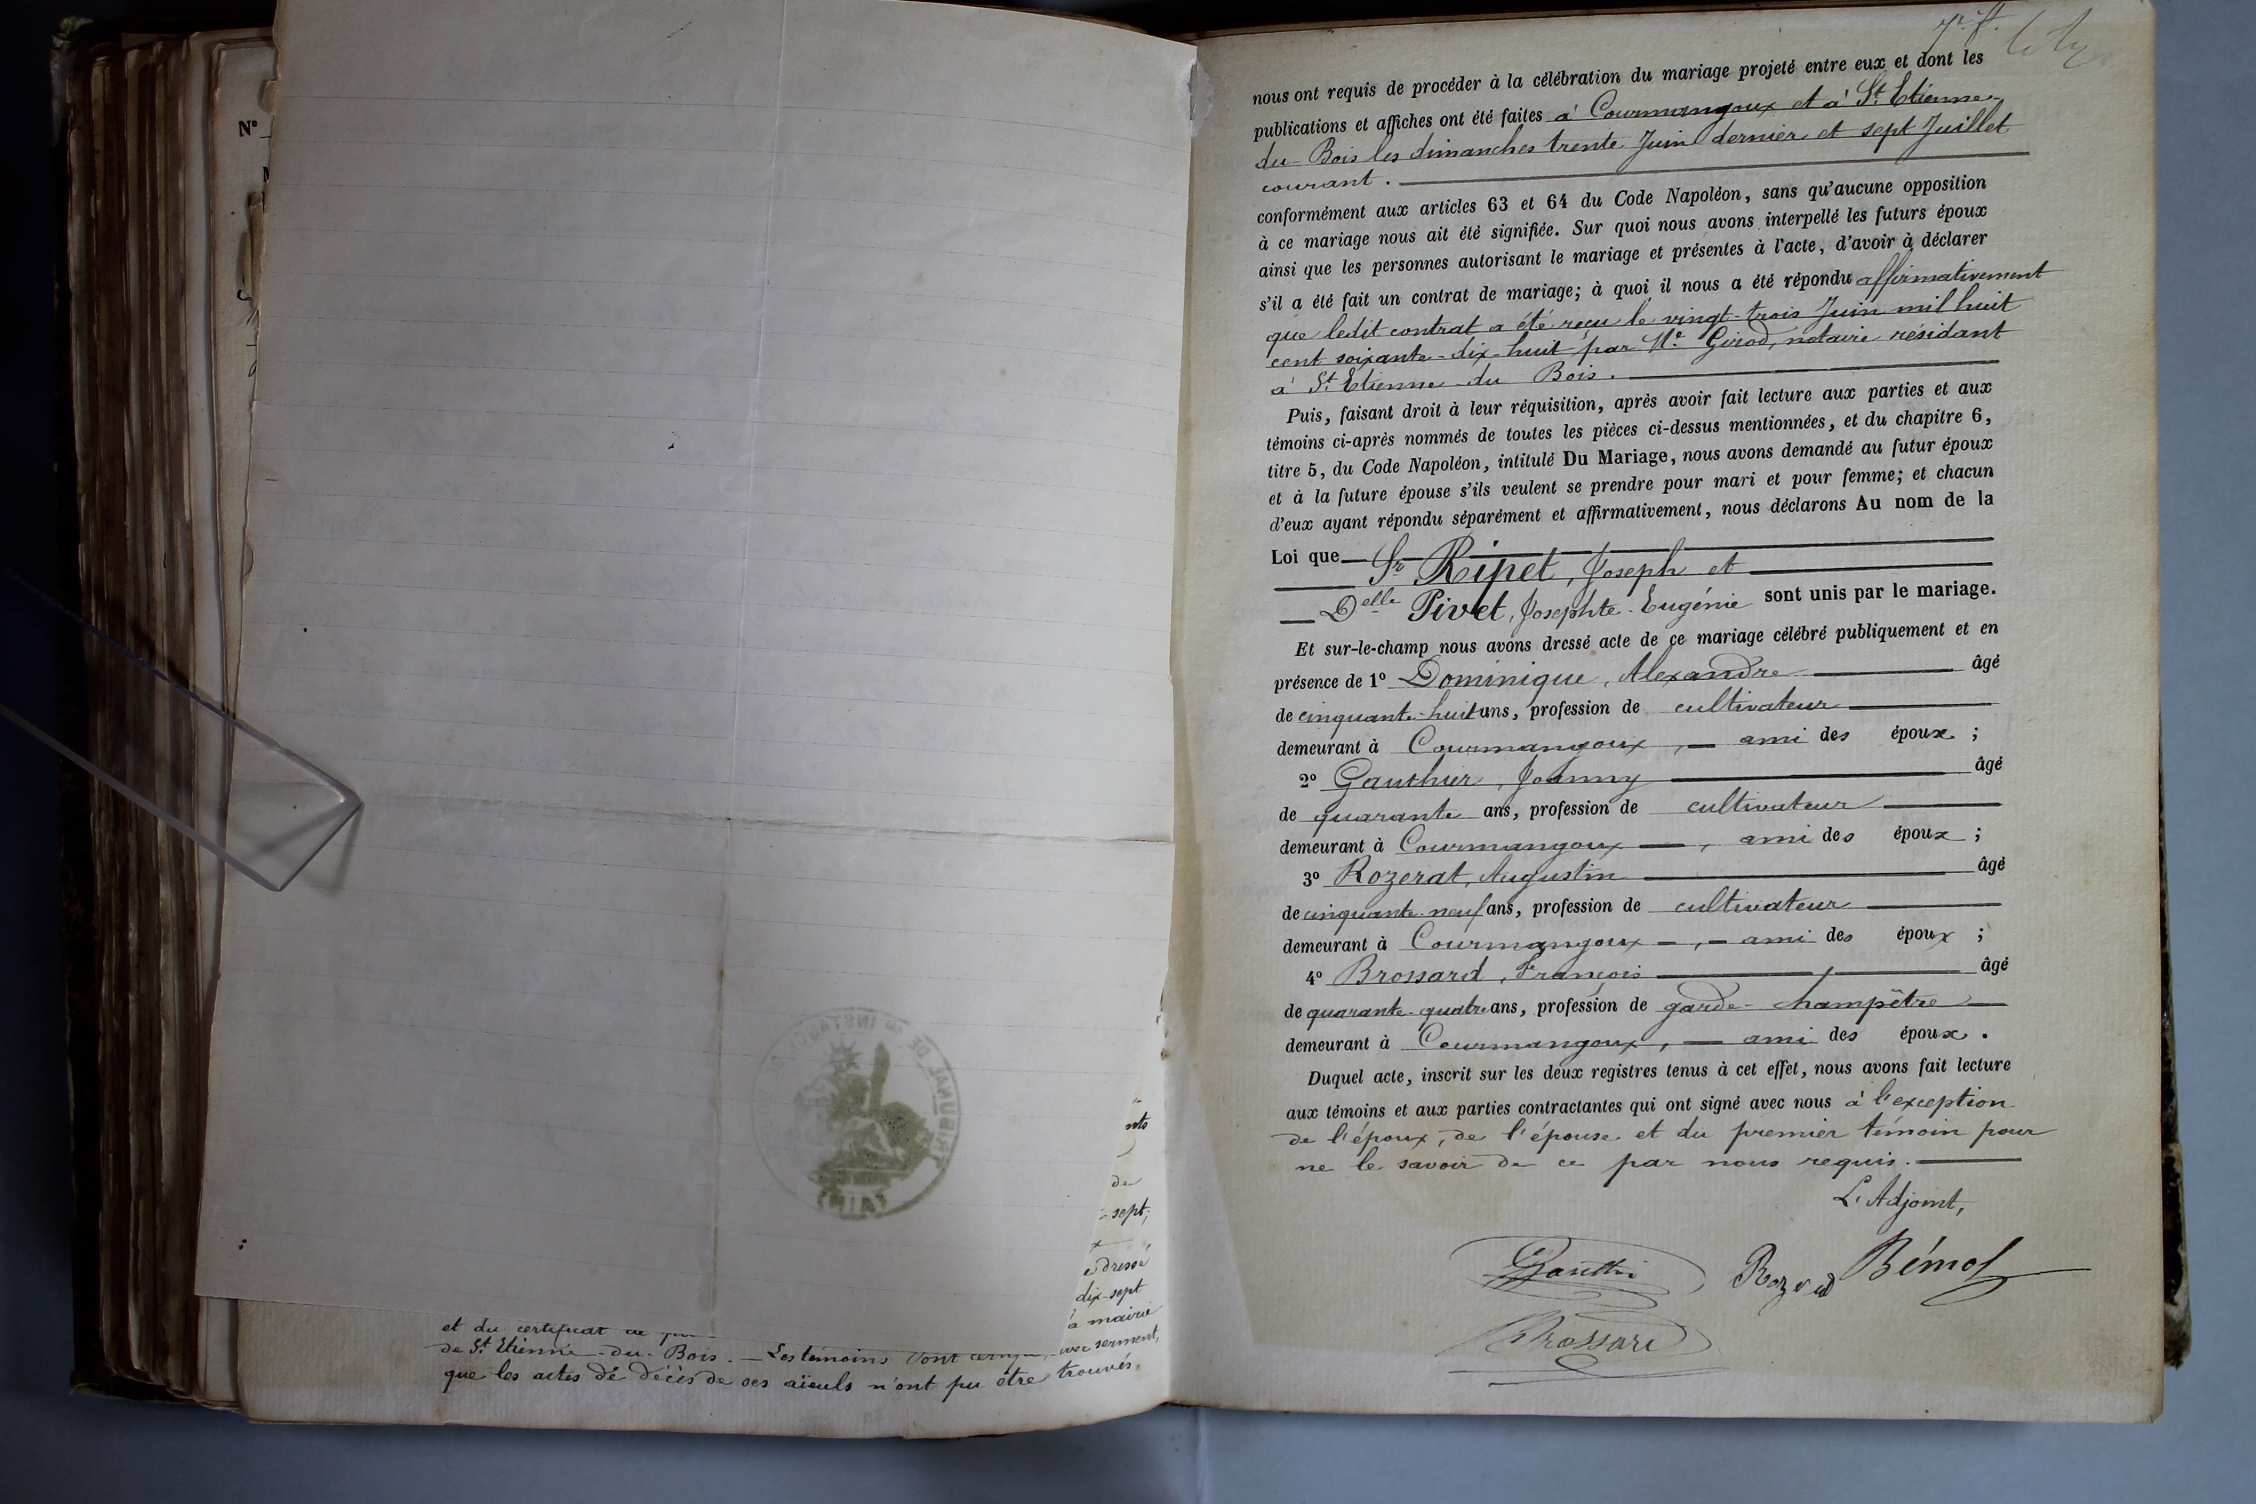 N°
nts
de
sept;
e dressé
dix-sept
a mairie
et du certificat de
de St Etienne-du-Bois. — Les témoins ont serment,
que les actes de décès de ses aïeuls n'ont pu être trouvés.
nous ont requis de procéder à la célébration du mariage projeté entre eux et dont les
publications et affiches ont été faites à Courmangoux et à St Etienne
du-Bois les dimanches trente Juin dernier et sept Juillet
courant.
conformément aux articles 63 et 64 du Code Napoléon, sans qu'aucune opposition
à ce mariage nous ait été signifiée. Sur quoi nous avons interpellé les futurs époux
ainsi que les personnes autorisant le mariage et présentes à l'acte, d'avoir à déclarer
s'il a été fait un contrat de mariage; à quoi il nous a été répondu affirmativement
que ledit contrat a été reçu le vingt-trois Juin mil huit
cent soixante-dix-huit par Me Girod, notaire résidant
à St Etienne-du Bois.
Puis, faisant droit à leur réquisition, après avoir fait lecture aux parties et aux
témoins ci-après nommés de toutes les pièces ci-dessus mentionnées, et du chapitre 6,
titre 5, du Code Napoléon, intitulé Du Mariage, nous avons demandé au futur époux
et à la future épouse s'ils veulent se prendre pour mari et pour femme; et chacun
d'eux ayant répondu séparément et affirmativement, nous déclarons Au nom de la
Loi que Sr Ripet, Joseph et
Delle Pivet, Josephte-Eugénie sont unis par le mariage.
Et sur-le-champ nous avons dressé acte de ce mariage célébré publiquement et en
présence de 1° Dominique, Alexandre âgé
de cinquante-huit ans, profession de cultivateur
demeurant à Courmangoux, — ami des époux ;
2° Gauthier, Joanny âgé
de quarante ans, profession de cultivateur
demeurant à Courmangoux —, ami des époux ;
3° Rozerat, Augustin âgé
de cinquante-neuf ans, profession de cultivateur
demeurant à Courmangoux —, — ami des époux ;
4° Brossard, François âgé
de quarante-quatre ans, profession de garde-champêtre
demeurant à Courmangoux, — ami des époux.
Duquel acte, inscrit sur les deux registres tenus à cet effet, nous avons fait lecture
aux témoins et aux parties contractantes qui ont signé avec nous à l'exception
de l'époux, de l'épouse et du premier témoin pour
ne le savoir de ce par nous requis.
L'Adjoint,
Gauthi Rozerat Bémol
Brossard